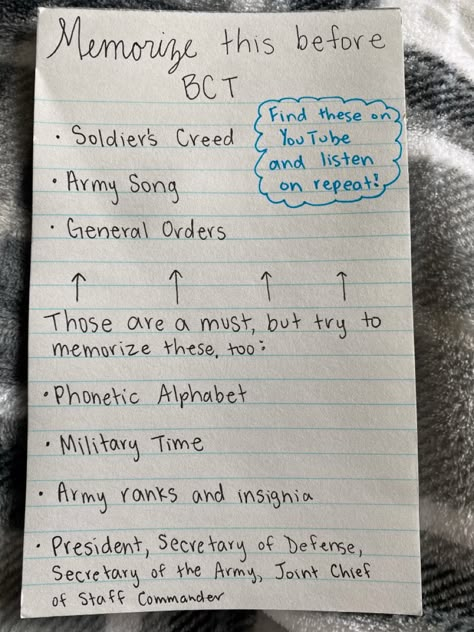 Memorize this before
BCT
• Soldier's Creed
Find these on
YouTube
and listen
on repeat!
• Army Song
• General Orders
↑ ↑ ↑ ↑
Those are a must, but try to
memorize these, too:
• Phonetic Alphabet
• Military Time
• Army ranks and insignia
• President, Secretary of Defense,
Secretary of the Army, Joint Chief
of Staff Commander